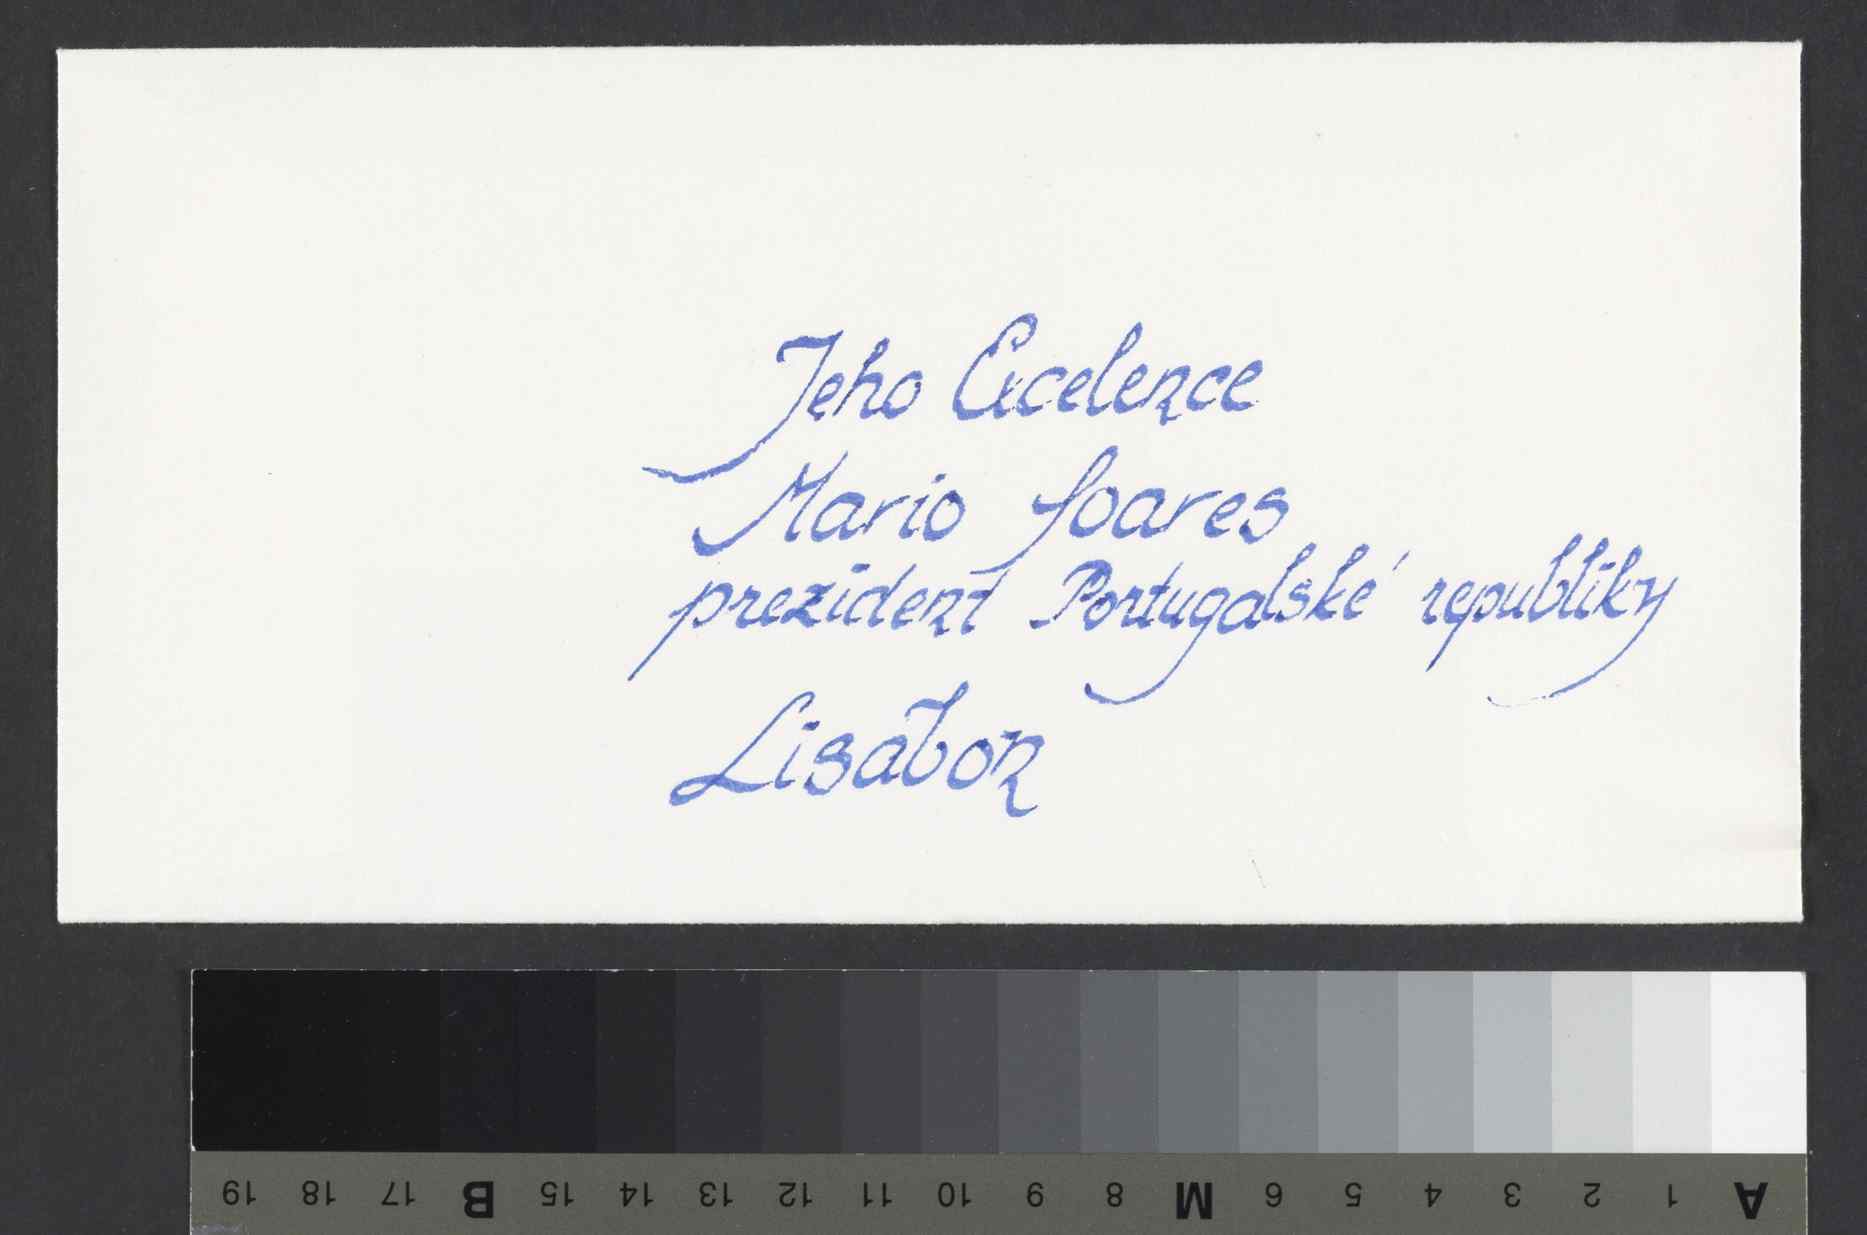 Jeho Excelence
Mario Soares
prezident Portugalské republiky
Lisabon
19 18 17 B 15 14 13 12 11 10 9 8 M 6 5 4 3 2 1 A